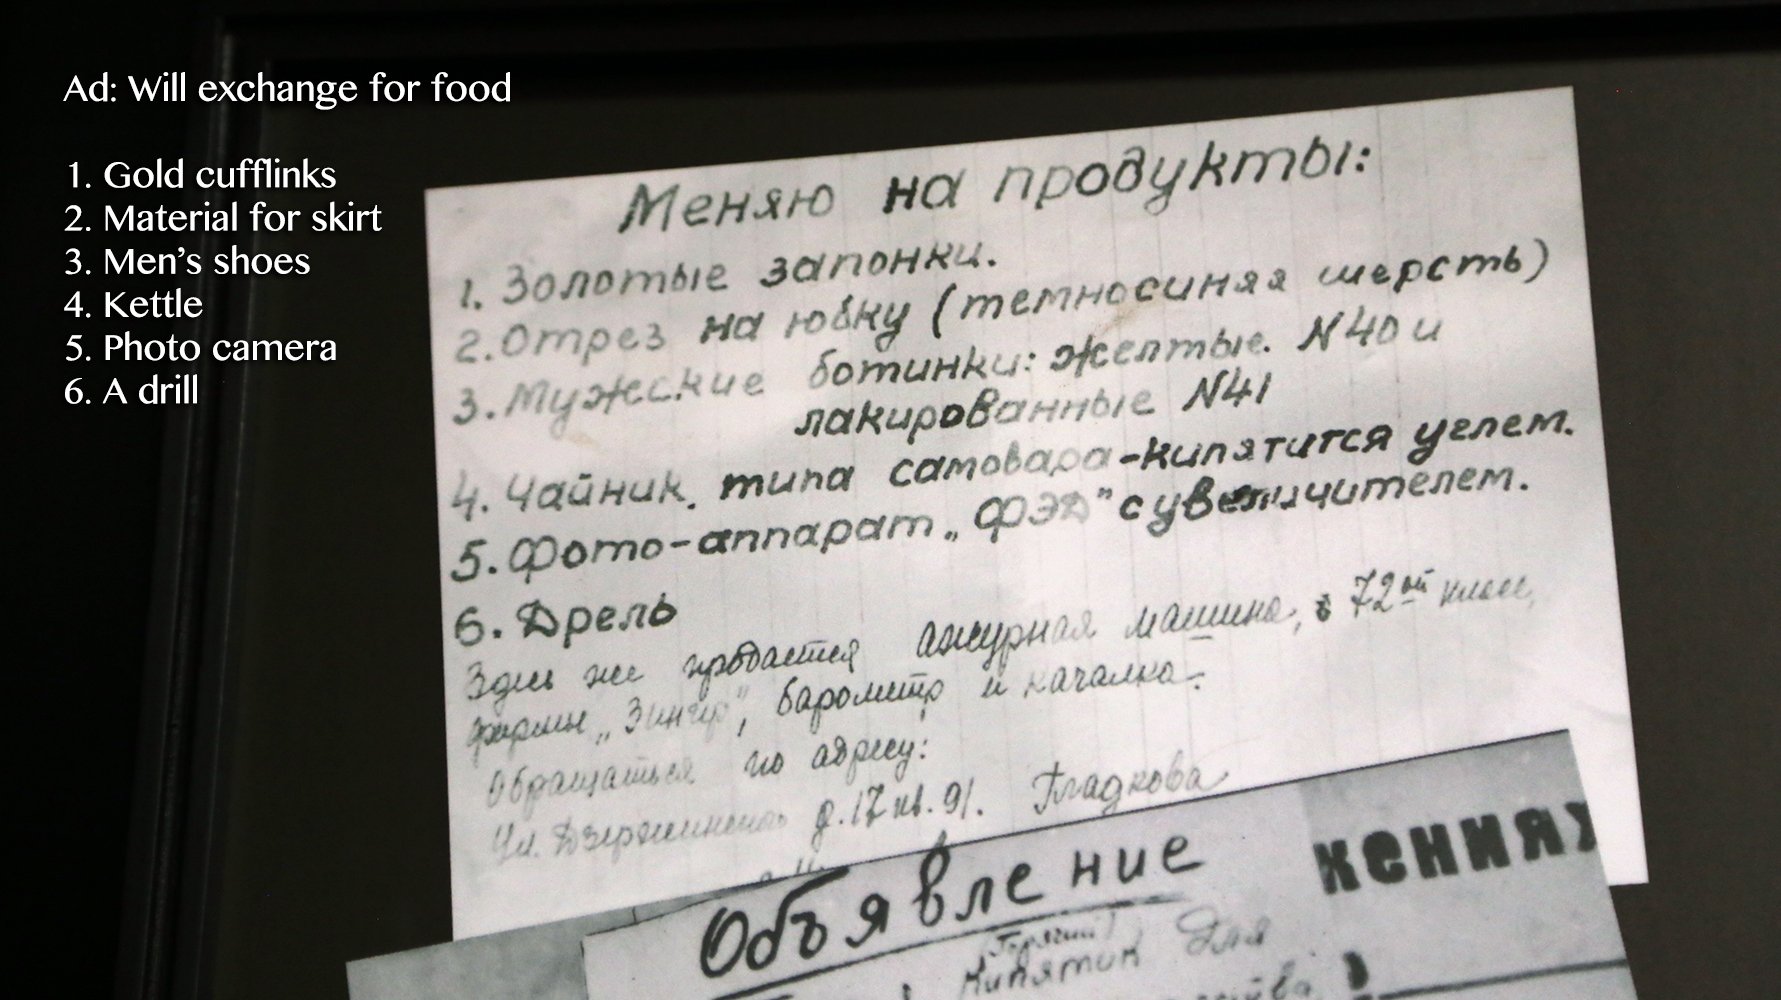 Ad: Will exchange for food
1. Gold cufflinks
2. Material for skirt
3. Men’s shoes
4. Kettle
5. Photo camera
6. A drill
Меняю на продукты:
1. Золотые запонки.
2. Отрез на юбку (темносиняя шерсть)
3. Мужские ботинки: желтые. N40 и
лакированные N41
4. Чайник. типа самовара-кипятится углем.
5. Фото-аппарат „ФЭД” с увеличителем.
6. Дрель
Здесь же продается ажурная машина, 72ой класс,
фирмы „Зингер”, барометр и качалка.
Обращаться по адресу:
Ул. Дзержинского д. 17 кв. 91. Гладкова
Объявление
жениях
(Горячий)
Кипяток для